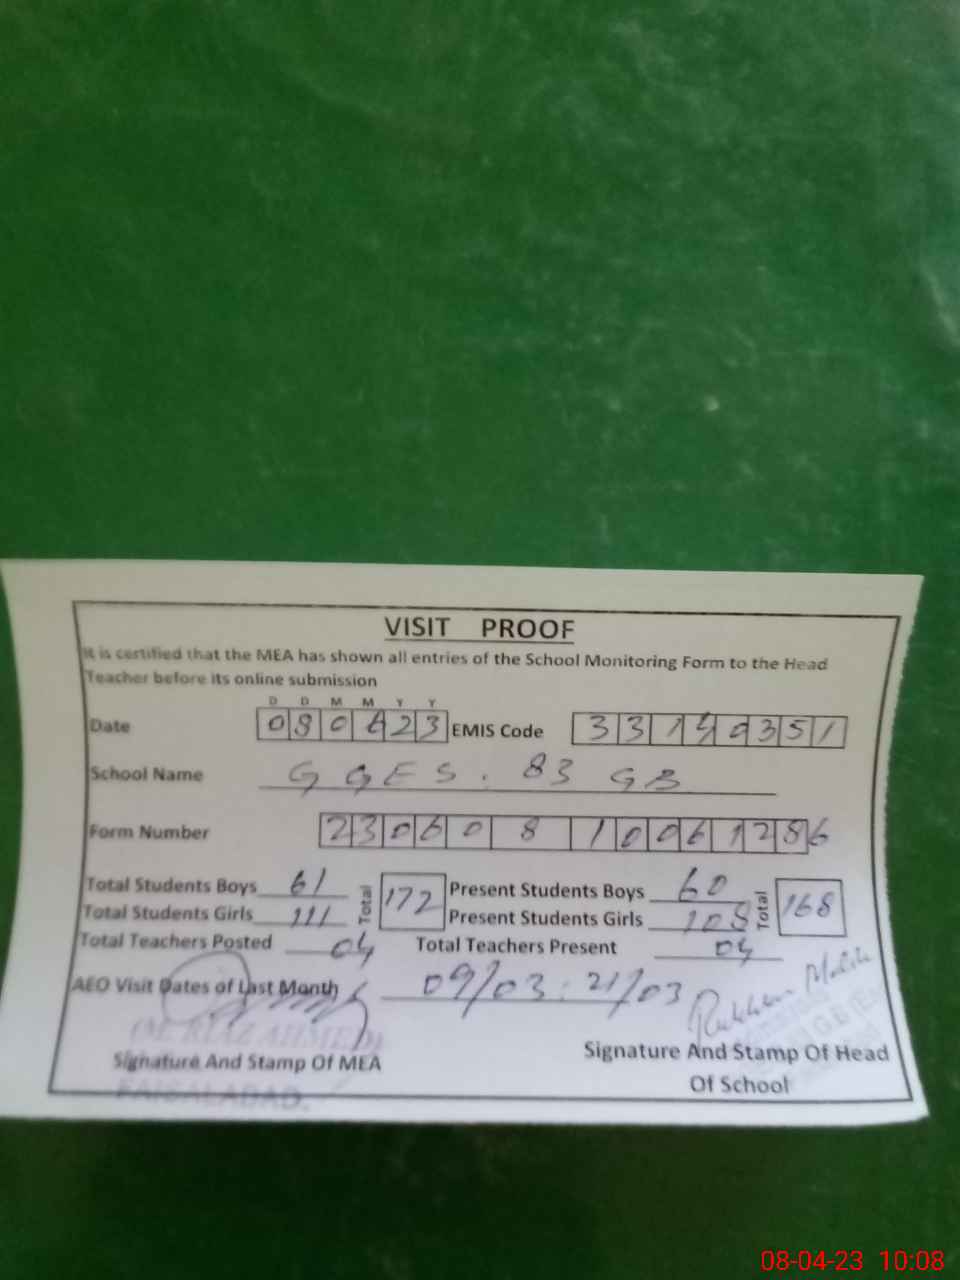 VISIT PROOF
It is certified that the MEA has shown all entries of the School Monitoring Form to the Head
Teacher before its online submission
D D M M Y Y
Date 080423 EMIS Code 33140351
School Name GGES. 83 GB
Form Number 23060810061286
Total Students Boys 61 Total 172 Present Students Boys 60 Total 168
Total Students Girls 111 Present Students Girls 108
Total Teachers Posted 04 Total Teachers Present 04
AEO Visit Dates of Last Month 09/03 : 21/03
(M. RIAZ AHMED)
Signature And Stamp Of MEA
FAISALABAD.
Signature And Stamp Of Head
Of School
08-04-23 10:08